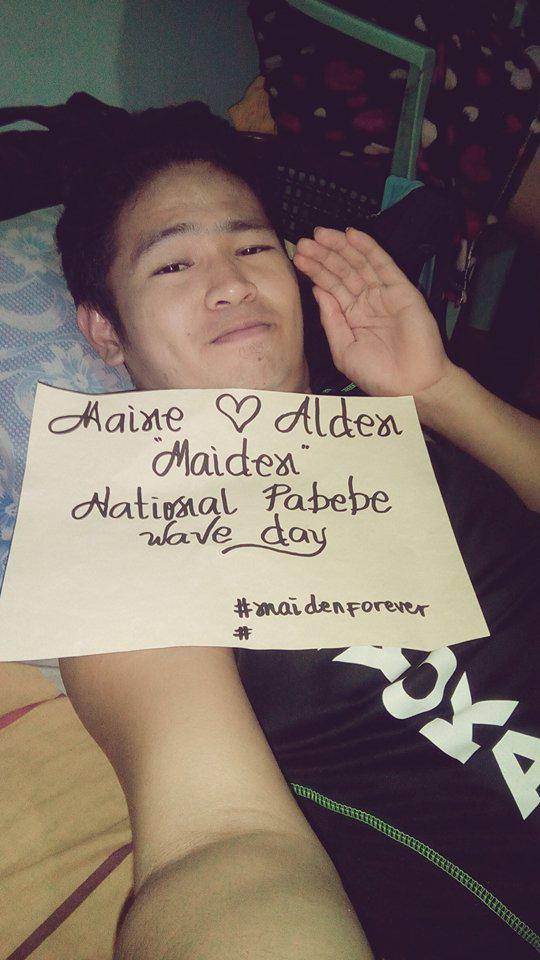 Maine ♡ Alden
"Maiden"
National Pabebe
wave day
#maidenforever
#
OKA